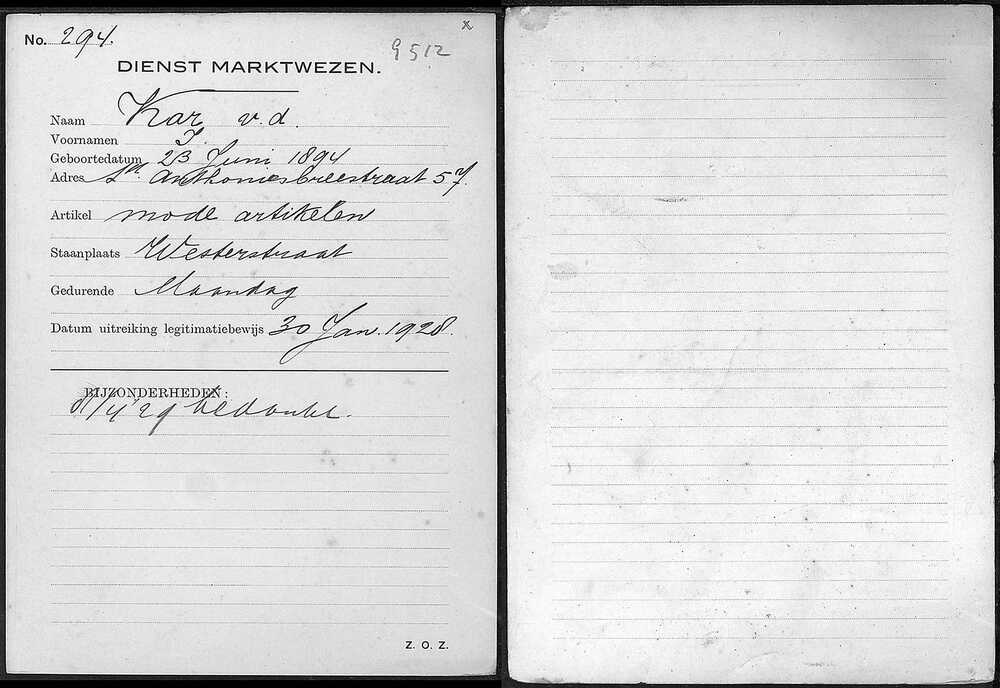 No. 294.
x
9512
DIENST MARKTWEZEN.
Naam Kar v.d.
Voornamen J.
Geboortedatum 23 Juni 1894
Adres St. Anthoniesbreestraat 57.
Artikel mode artikelen
Staanplaats Westerstraat
Gedurende Maandag
Datum uitreiking legitimatiebewijs 30 Jan. 1928.
BIJZONDERHEDEN:
/4 '29 bedankt.
Z. O. Z.